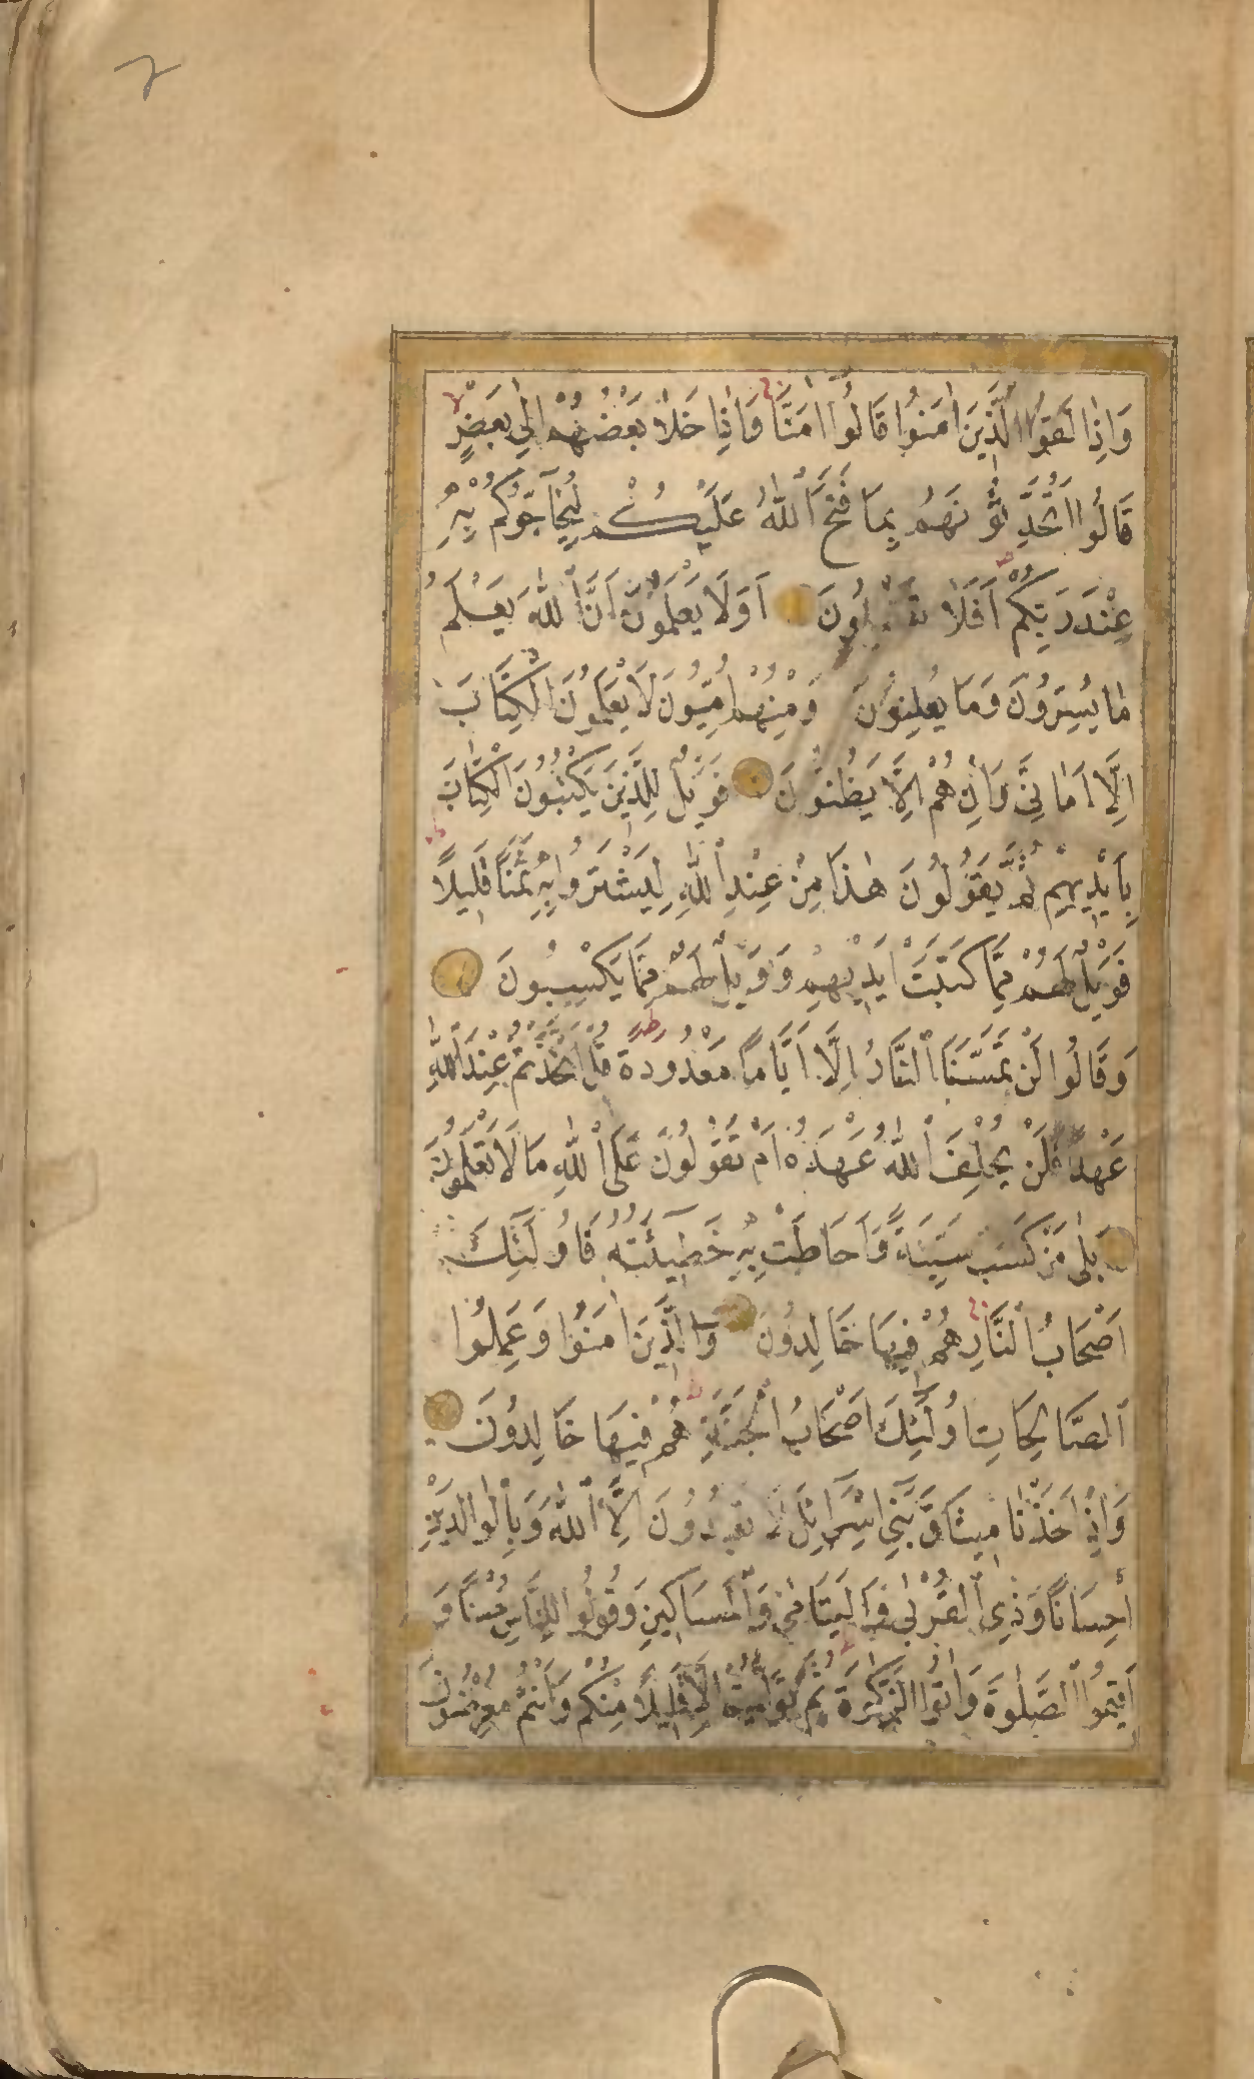 وَاِذَا لَقُوا الَّذِينَ اٰمَنُوا قَالُوا اٰمَنَّا وَاِذَا خَلَا بَعْضُهُمْ اِلٰى بَعْضٍ
قَالُوا اَتُحَدِّثُونَهُمْ بِمَا فَتَحَ اللّٰهُ عَلَيْكُمْ لِيُحَاجُّوكُمْ بِهِ
عِنْدَ رَبِّكُمْ اَفَلَا تَعْقِلُونَ اَوَلَا يَعْلَمُونَ اَنَّ اللّٰهَ يَعْلَمُ
مَا يُسِرُّونَ وَمَا يُعْلِنُونَ وَمِنْهُمْ اُمِّيُّونَ لَا يَعْلَمُونَ الْكِتَابَ
اِلَّا اَمَانِيَّ وَاِنْ هُمْ اِلَّا يَظُنُّونَ فَوَيْلٌ لِلَّذِينَ يَكْتُبُونَ الْكِتَابَ
بِاَيْدِيهِمْ ثُمَّ يَقُولُونَ هٰذَا مِنْ عِنْدِ اللّٰهِ لِيَشْتَرُوا بِهِ ثَمَنًا قَلِيلًا
فَوَيْلٌ لَهُمْ مِمَّا كَتَبَتْ اَيْدِيهِمْ وَوَيْلٌ لَهُمْ مِمَّا يَكْسِبُونَ
وَقَالُوا لَنْ تَمَسَّنَا النَّارُ اِلَّا اَيَّامًا مَعْدُودَةً قُلْ اَتَّخَذْتُمْ عِنْدَ اللّٰهِ
عَهْدًا فَلَنْ يُخْلِفَ اللّٰهُ عَهْدَهُ اَمْ تَقُولُونَ عَلَى اللّٰهِ مَا لَا تَعْلَمُونَ
بَلٰى مَنْ كَسَبَ سَيِّئَةً وَاَحَاطَتْ بِهِ خَطِيئَتُهُ فَاُولٰئِكَ
اَصْحَابُ النَّارِ هُمْ فِيهَا خَالِدُونَ وَالَّذِينَ اٰمَنُوا وَعَمِلُوا
الصَّالِحَاتِ اُولٰئِكَ اَصْحَابُ الْجَنَّةِ هُمْ فِيهَا خَالِدُونَ
وَاِذْ اَخَذْنَا مِيثَاقَ بَنِي اِسْرَائِلَ لَا تَعْبُدُونَ اِلَّا اللّٰهَ وَبِالْوَالِدَيْنِ
اِحْسَانًا وَذِي الْقُرْبٰى وَالْيَتَامٰى وَالْمَسَاكِينِ وَقُولُوا لِلنَّاسِ حُسْنًا وَ
اَقِيمُوا الصَّلٰوةَ وَاٰتُوا الزَّكٰوةَ ثُمَّ تَوَلَّيْتُمْ اِلَّا قَلِيلًا مِنْكُمْ وَاَنْتُمْ مُعْرِضُونَ